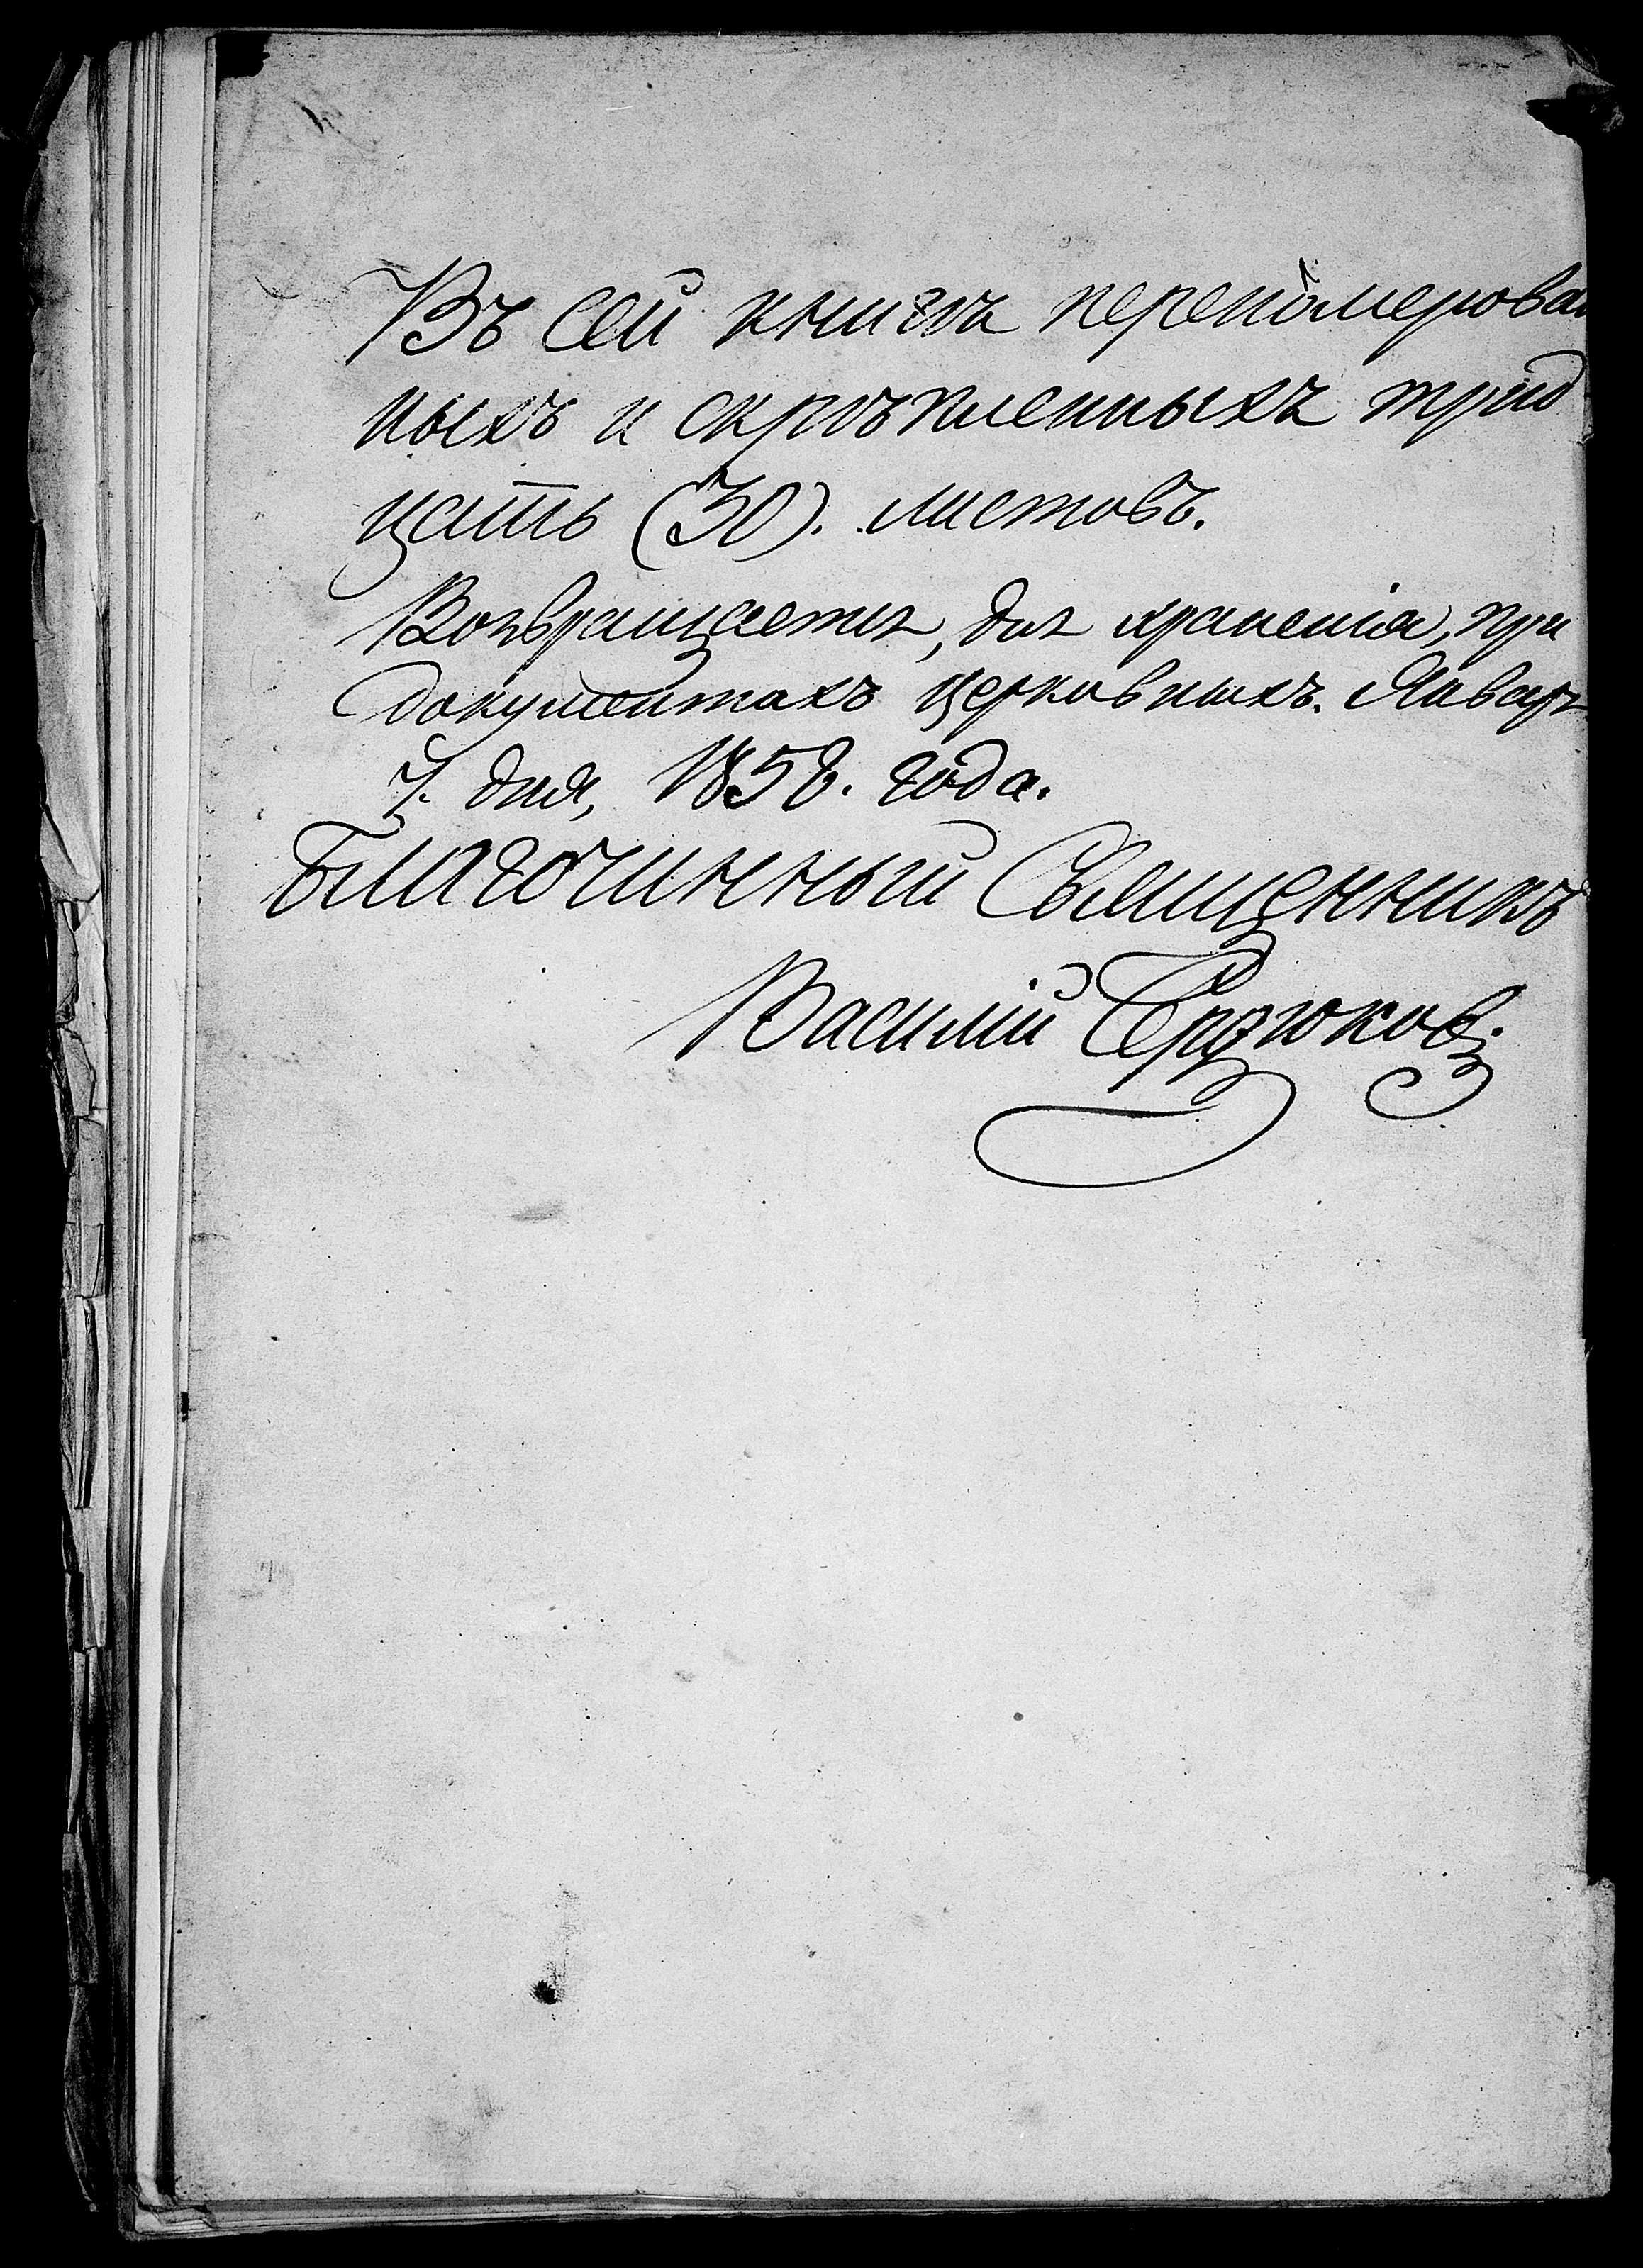 Въ сей книгѣ перепомерован
ныхъ и скрѣпленныхъ трид
цать (30). листовъ.
Возвращается, для храненія, при
документахъ церковныхъ. Января
7. дня, 1858. года.
Благочинный Священникъ
Василій Сердюковъ.